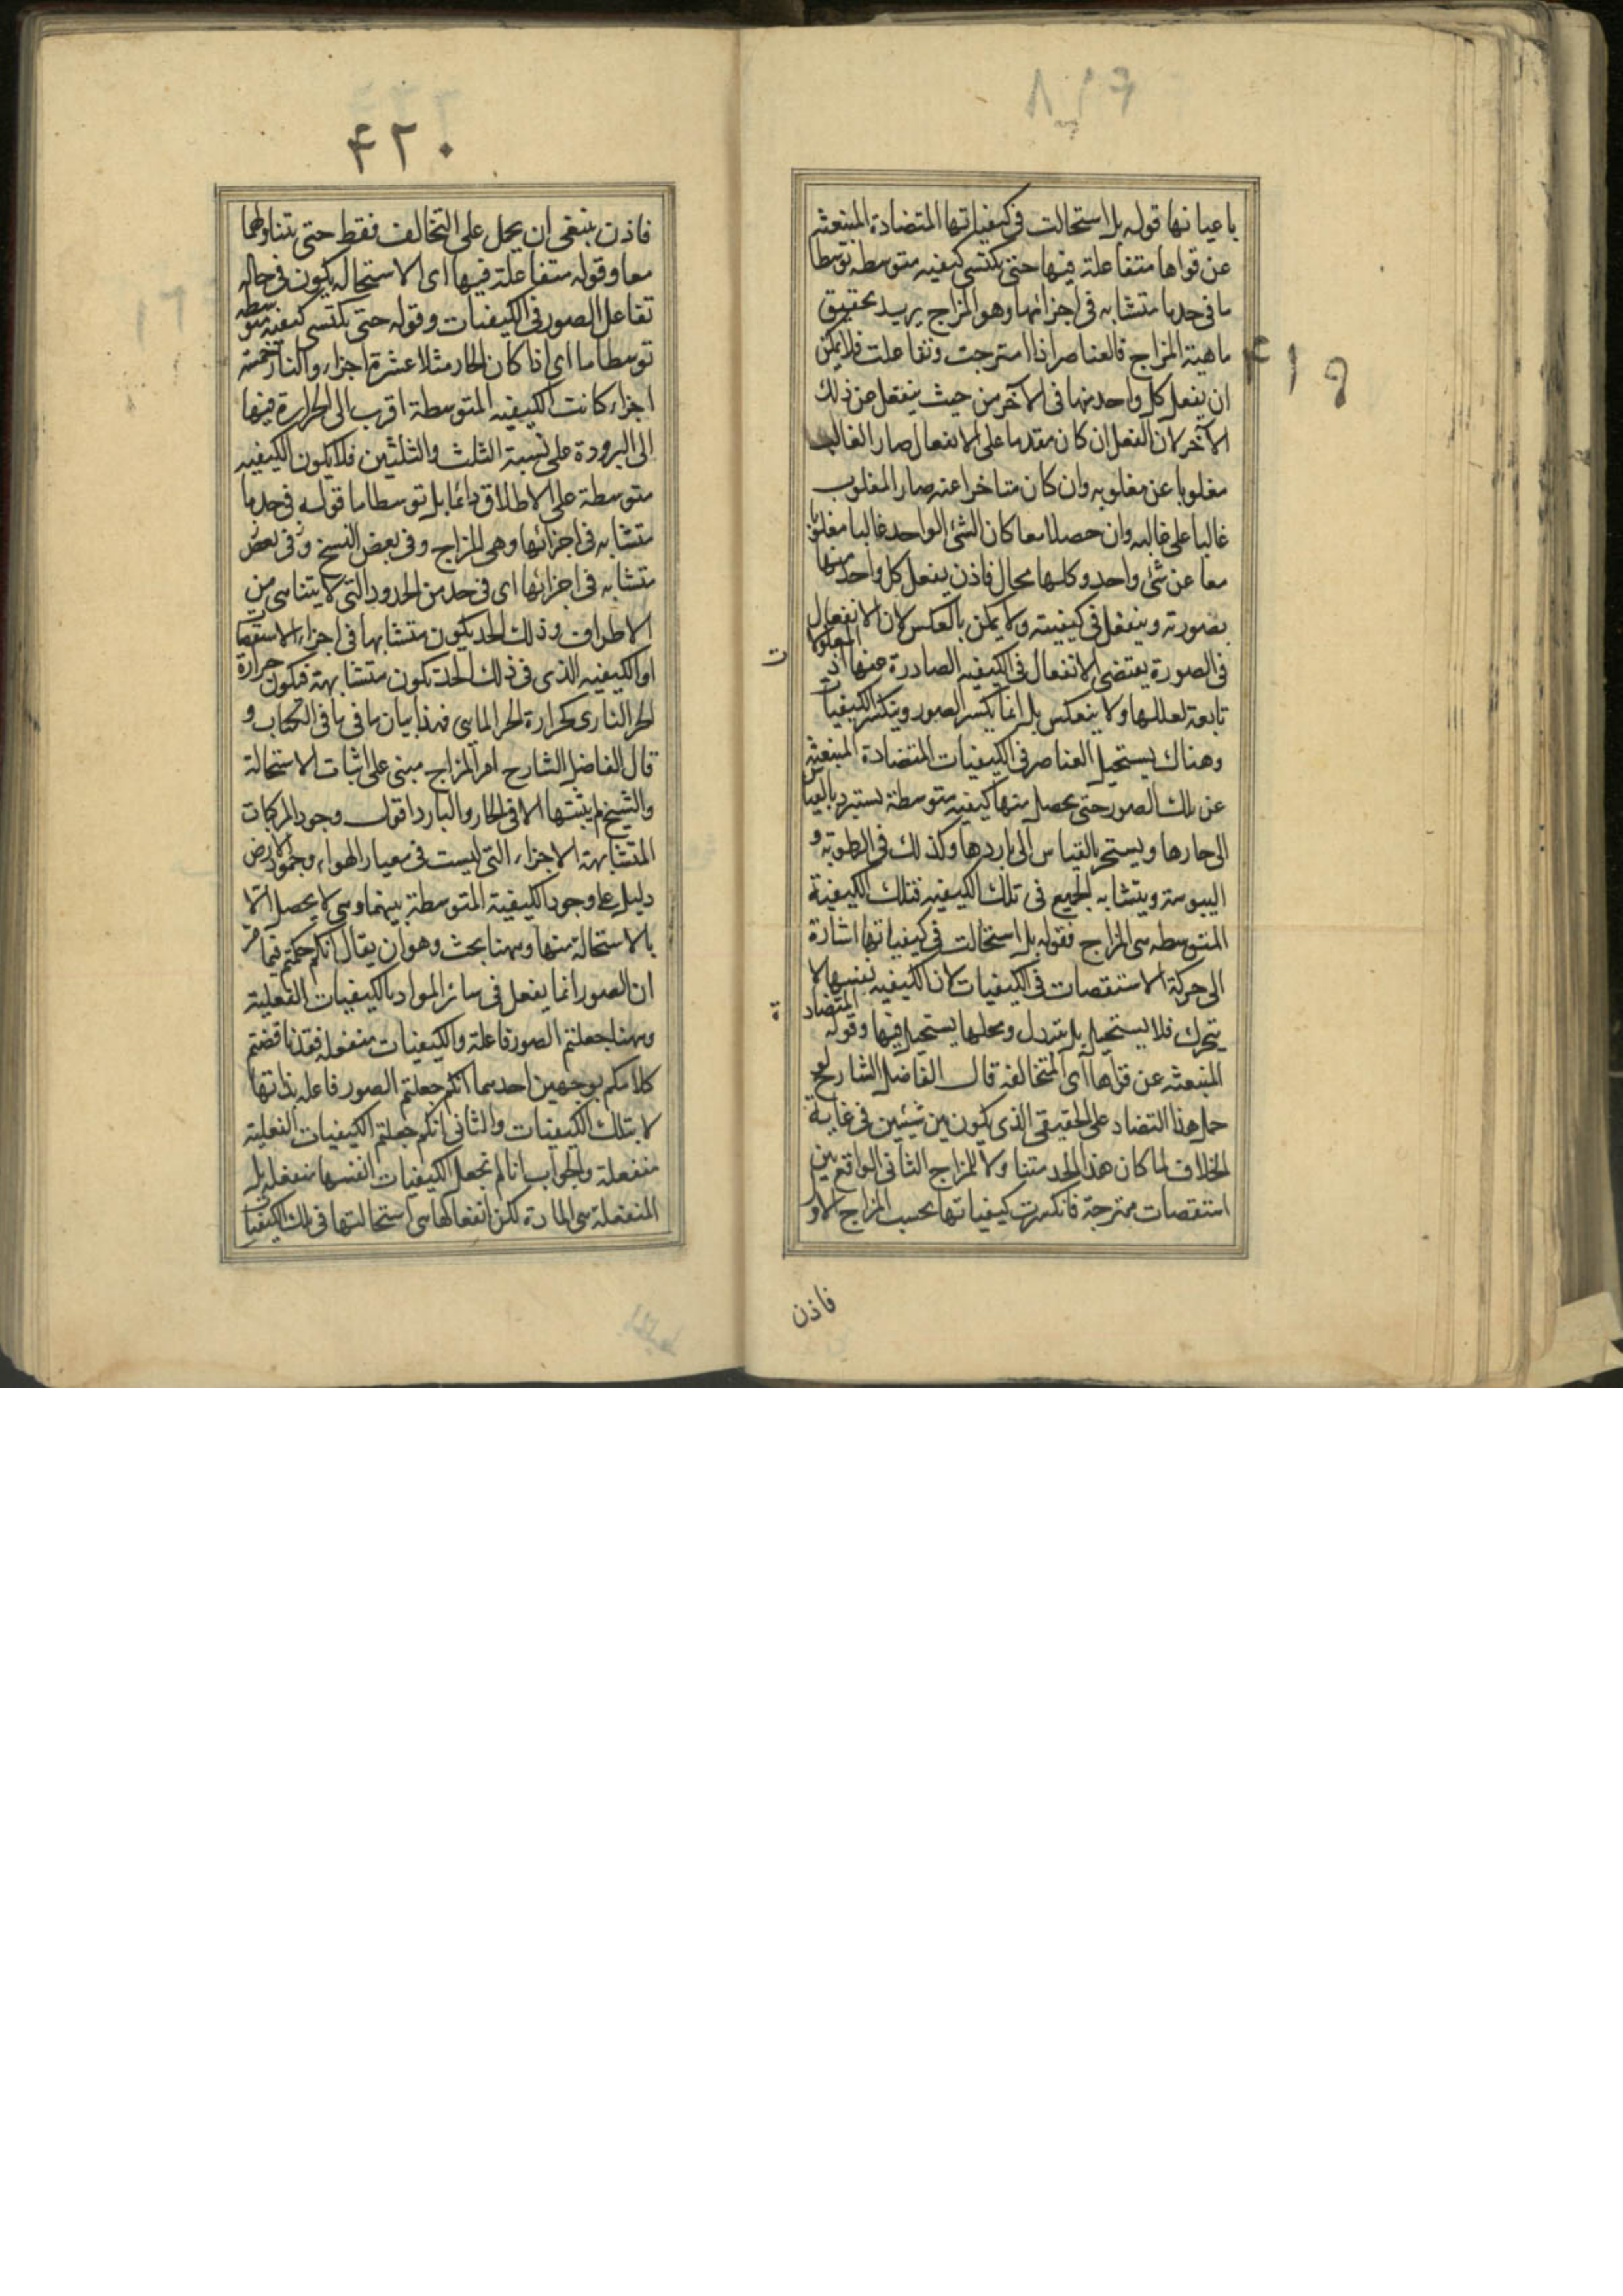 ٤١٩
باعيانها قوله بل استحالت فى كيفياتها المتضادة المنبعثه
عن قواها متفاعلة فيها حتى تكتسى كيفيه متوسطه توسطا
ما فى حد ما متشابه فى اجزائها وهو المزاج يريد تحقيق
ماهية المزاج فالعناصر اذا امتزجت وتفاعلت فلا يمكن
ان يفعل كل واحد منها فى الآخر من حيث ينفعل عن ذلك
الآخر لان الفعل ان كان مقدما على الانفعال صار الغالب
مغلوبا عن مغلوبه وان كان متاخرا عنه صار المغلوب
غالبا على غالبه وان حصلا معا كان الشئ الواحد غالبا مغلوبا
معا عن شئ واحد وكلها محال فاذن يفعل كل واحد منها
بصورته وينفعل فى كيفيته ولا يمكن بالعكس لان الانفعال
فى الصورة يقتضى الانفعال فى الكيفيه الصادرة عنها اذ المعلولات
تابعة لعللها ولا ينعكس بل انما يكسر الصور وينكسر الكيفيات
وهناك يستحيل العناصر فى الكيفيات المتضادة المنبعثه
عن تلك الصور حتى يحصل منها كيفيه متوسطة يستبرد بالقياس
الى حارها ويستحر بالقياس الى باردها وكذلك فى الرطوبه و
اليبوسة ويتشابه الجميع فى تلك الكيفيه فتلك الكيفية
المتوسطه هى المزاج فقوله بل استحالت فى كيفياتها اشارة
الى حركة الاستقصات فى الكيفيات لان الكيفيه نفسها لا
يتحرك فلا يستحيل بل يتبدل ومحلها يستحيل فيها وقوله المتضادة
المنبعثه عن قواها اى المتخالفه قال الفاضل الشارح لو
حمل هذا التضاد على الحقيقى الذى يكون بين شيئين فى غاية
الخلاف لما كان هذا الحد متناولا للمزاج الثانى الواقع بين
استقصات ممتزجة فانكسرت كيفياتها بحسب المزاج الاول
فاذن
٤٢٠
فاذن ينبغى ان يحمل على التخالف فقط حتى يتناولهما
معا وقوله متفاعلة فيها اى الاستحاله يكون فى حاله
تفاعل الصور فى الكيفيات وقوله حتى يكتسى كيفيه متوسطه
توسطا ما اى اذا كان الحار مثلا عشرة اجزاء والنار خمسة
اجزاء كانت الكيفيه المتوسطة اقرب الى الحرارة فيها
الى البرودة على نسبة الثلث والثلثين فلا يكون الكيفيه
متوسطة على الاطلاق دائما بل توسطا ما قوله فى حد ما
متشابه فى اجزائها وهى المزاج وفى بعض النسخ وفى بعض
متشابه فى اجزائها اى فى حد من الحدود التى لا يتناهى من
الاطراف وذلك الحد يكون متشابها فى اجزاء الاستقصات
او الكيفيه الذى فى ذلك الحد تكون متشابهة فيكون حرارة
الحر النارى كحرارة الحر المائى فهذا بيان ما فى ما فى الكتاب و
قال الفاضل الشارح امر المزاج مبنى على اثبات الاستحالة
والشيخ لم يثبتها الا فى الحار والبارد اقول وجود المركبات
المتشابهة الاجزاء التى ليست فى معيار الهواء وجمود الارض
دليل على وجود الكيفية المتوسطة بينهما وهى لا يحصل الا
بالاستحالة منها وههنا بحث وهو ان يقال انكم حكمتم فيما مر
ان الصور انما يفعل فى سائر المواد بالكيفيات الفعلية
وههنا جعلتم الصور فاعلة والكيفيات منفعله فقد ناقضتم
كلامكم بوجهين احدهما انكم جعلتم الصور فاعله بذاتها
لا بتلك الكيفيات والثانى انكم جعلتم الكيفيات الفعلية
منفعلة والجواب انا لم نجعل الكيفيات انفسها منفعله بل
المنفعلة هى المادة لكن انفعالها هى استحالتها فى تلك الكيفيات